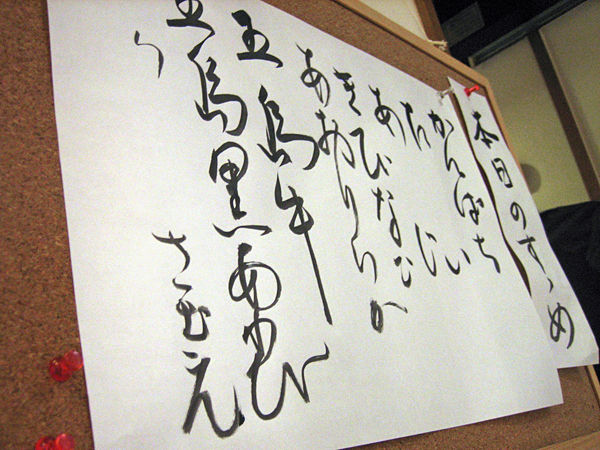 本日のすゝめ
かんぱち
たい
あじ
きびなご
あおりいか
五島牛
五島黒あわび
さざえ